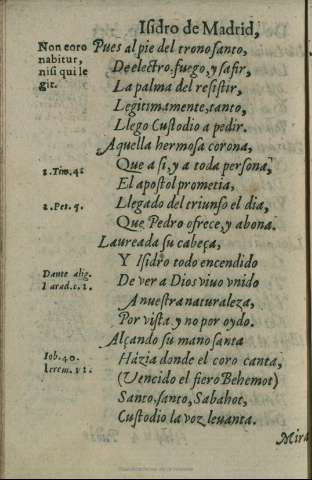 Isidro de Madrid,
Non coro
nabitur,
nisi qui le
git.
Pues al pie del trono santo,
De electro, fuego, y safir,
La palma del resistir,
Legitimamente, tanto,
Llego Custodio a pedir.
Aquella hermosa corona,
2.Tim. 4.
Que a si, y a toda persona,
El apostol prometia,
2.Pet. 5.
Llegado del triunfo el dia,
Que Pedro ofrece, y abona.
Laureada su cabeça,
Y Isidro todo encendido
Dante alig.
Parad.c.2.
De ver a Dios viuo vnido
A nuestra naturaleza,
Por vista y no por oydo.
Alçando su mano santa
Iob.40.
Ierem. 51.
Házia donde el coro canta,
(Vencido el fiero Behemot)
Santo, santo, Sabahot,
Custodio la voz leuanta.
Mira